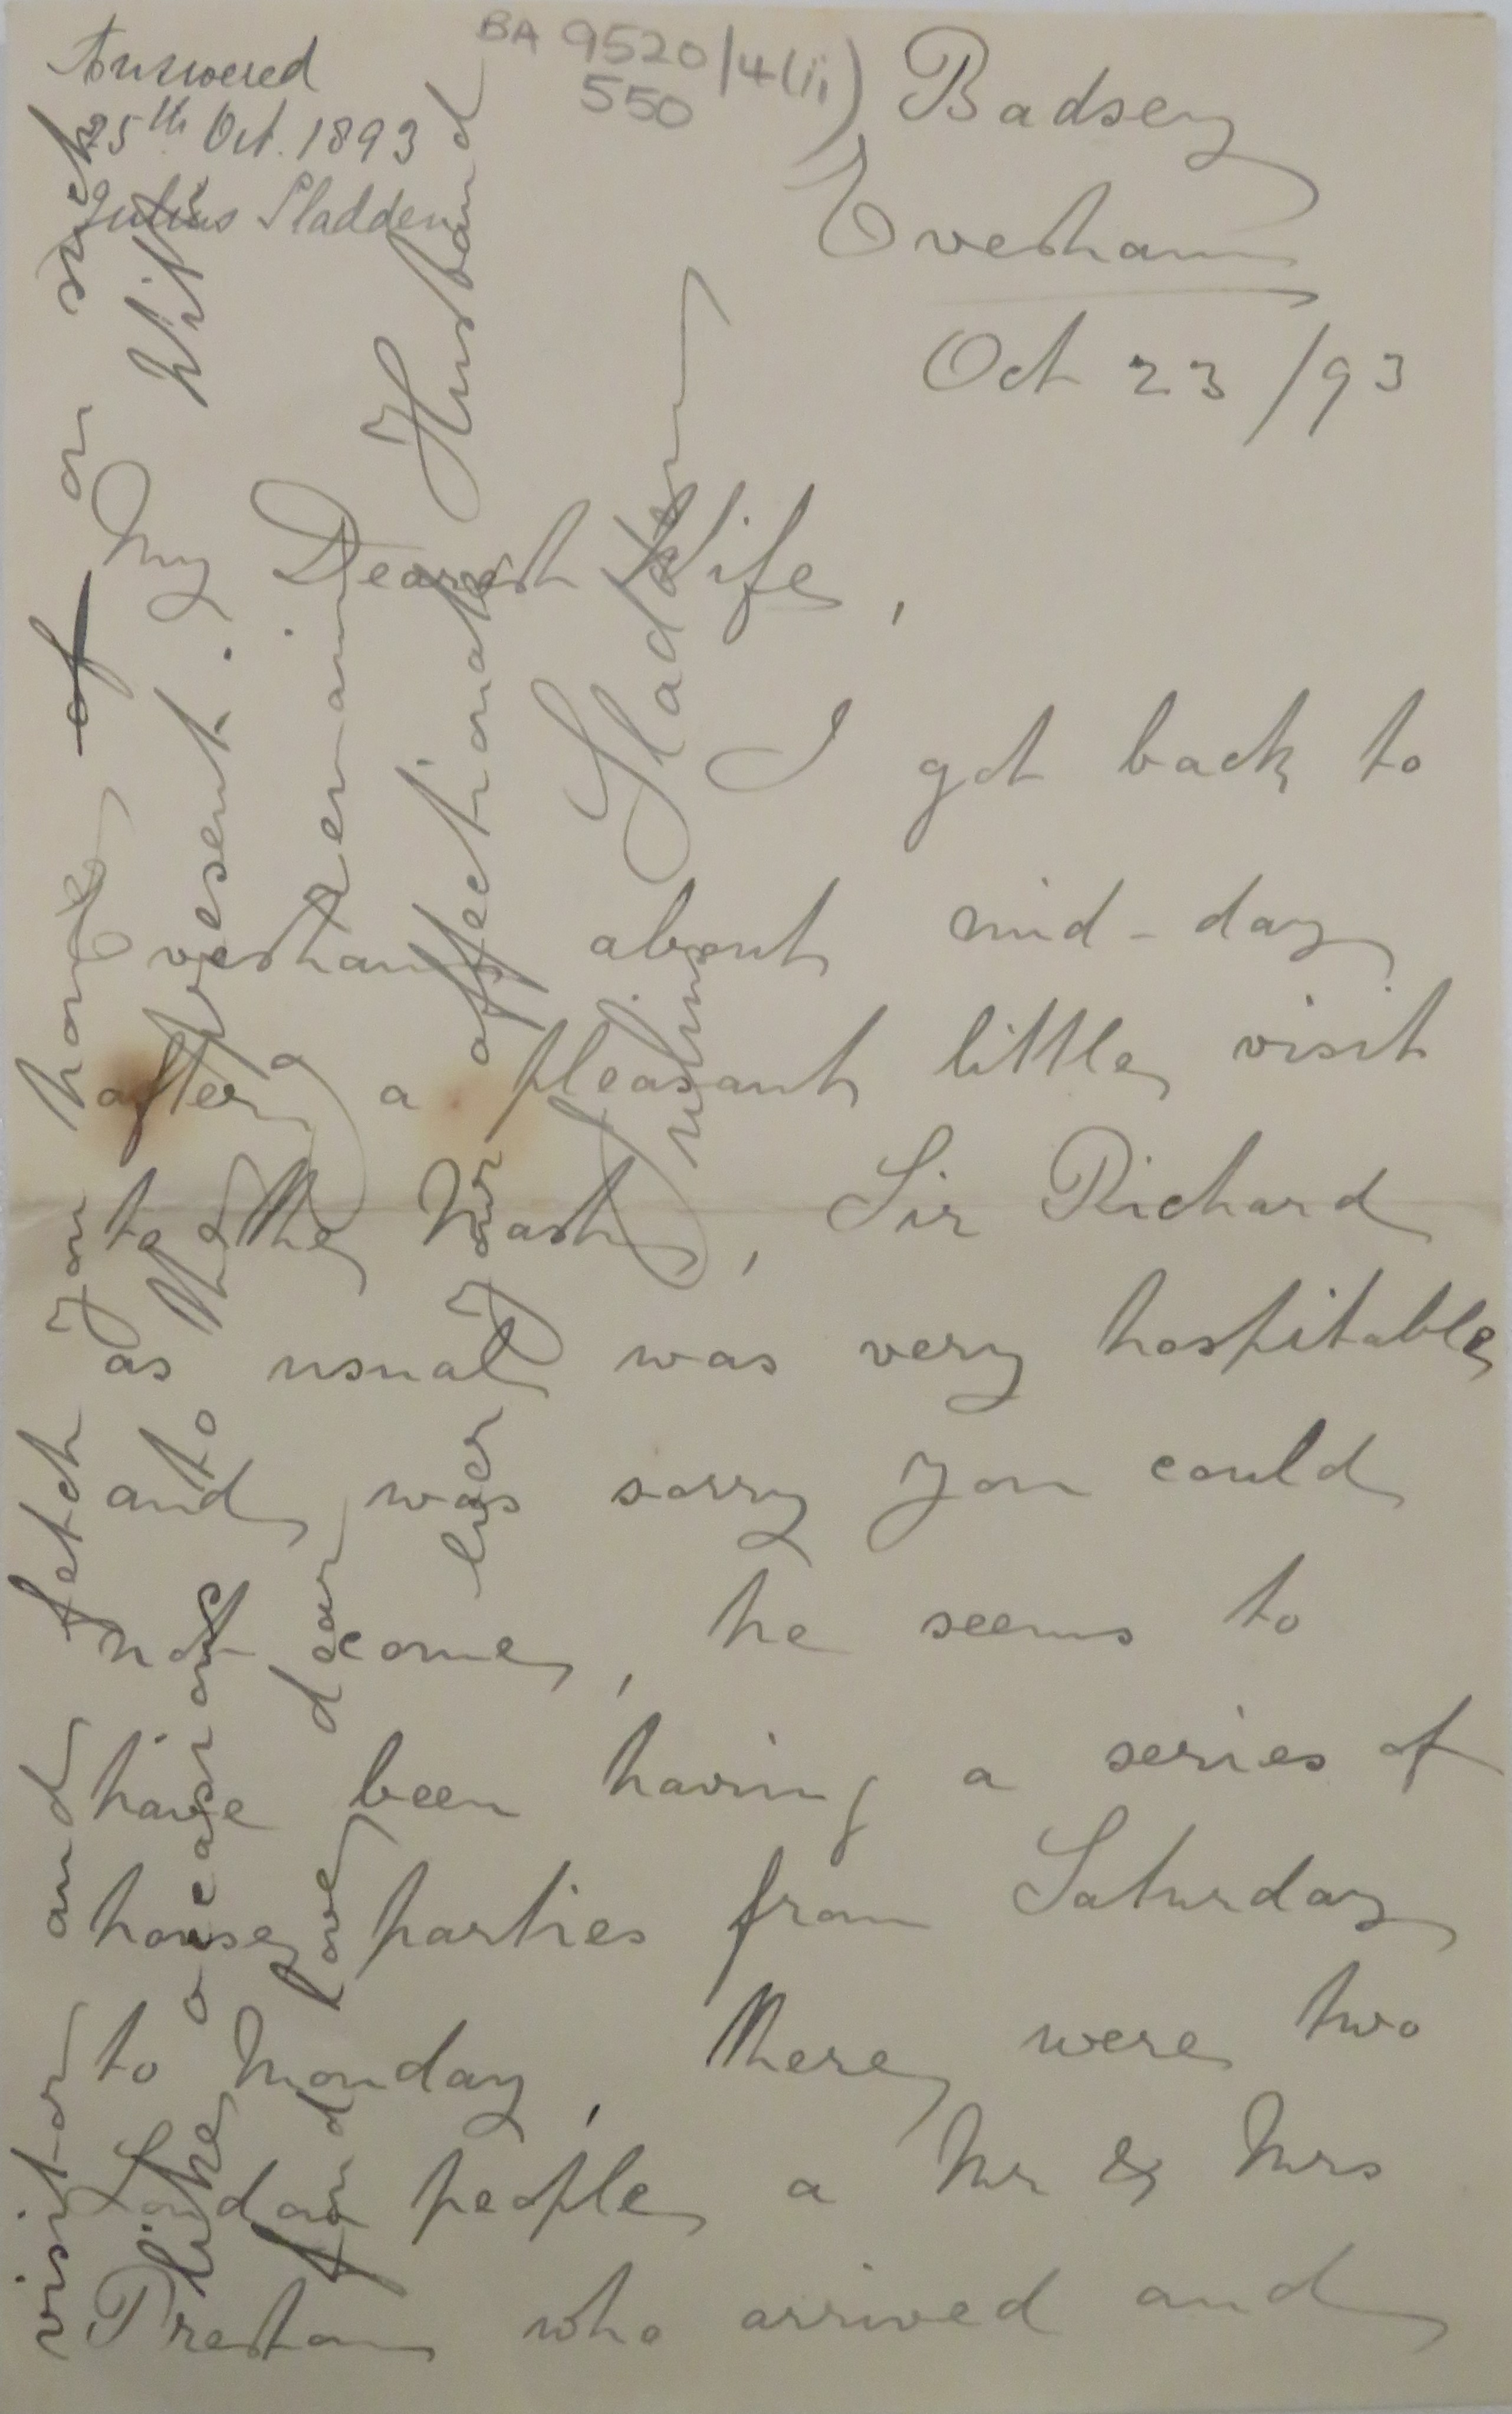 BA 9520/4(ii)
550
Answered
25th Oct. 1893
Julius Sladden
Badsey
Evesham
Oct 23/93
My Dearest Wife,
I got back to
Evesham about mid-day
after a pleasant little visit
to the Nash, Sir Richard
as usual was very hospitable
and was sorry you could
not come, he seems to
have been having a series of
house parties from Saturday
to Monday, there were two
London people a Mr & Mrs
Preston who arrived and
visitor and fetch you home of on such
like occasions to the present. With
fond love dear I remain
ever your affectionate Husband
Julius Sladden